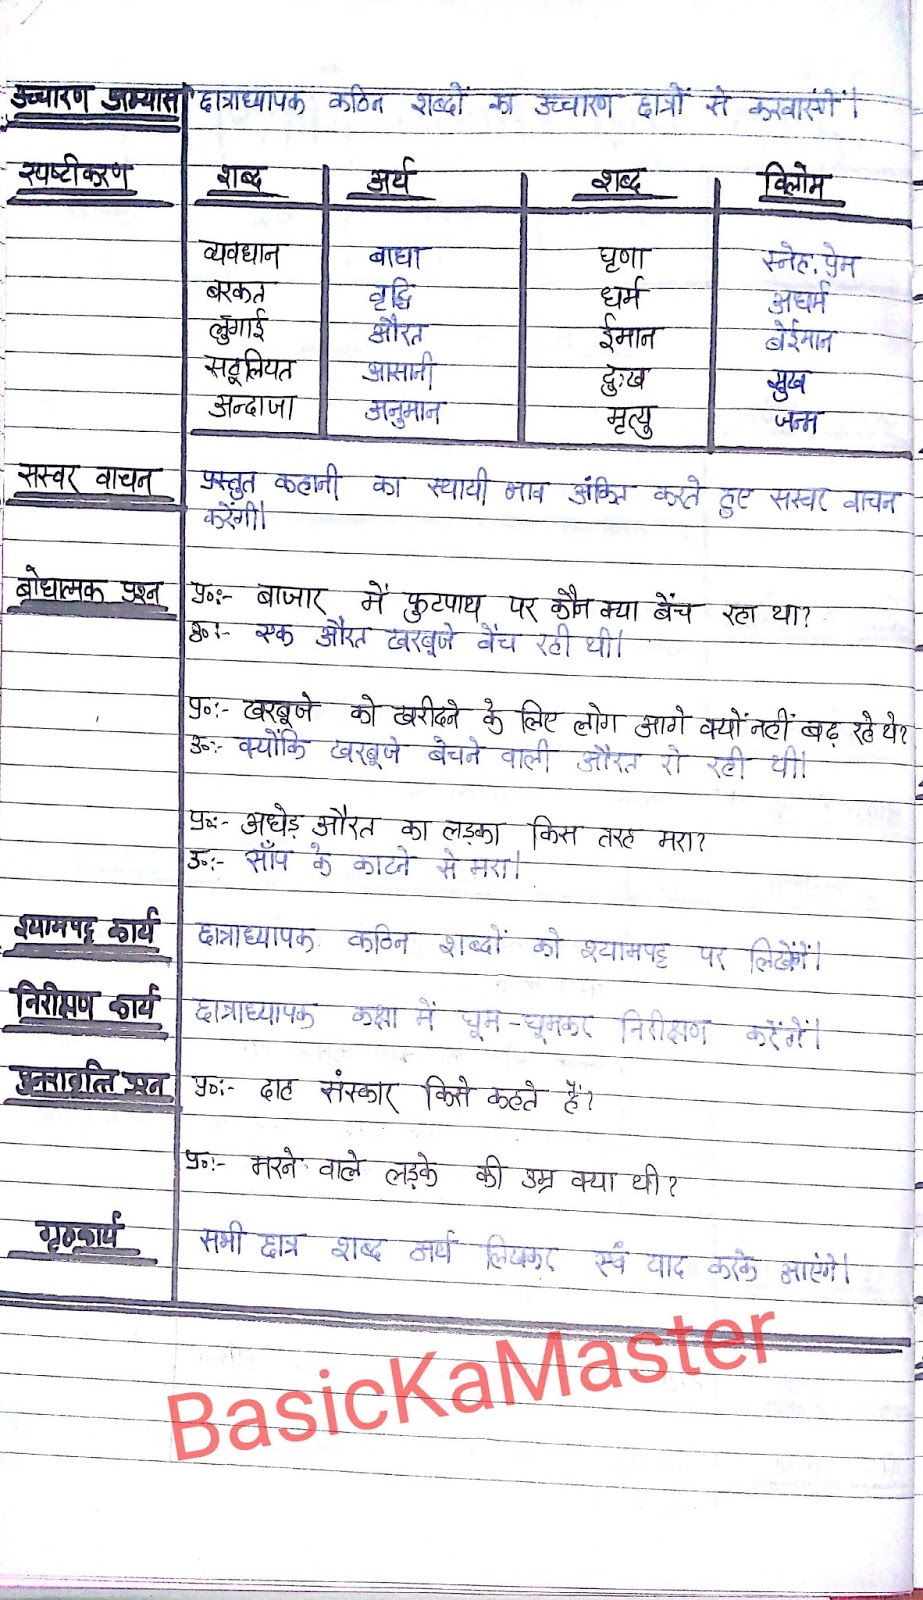 उच्चारण अभ्यास छात्राध्यापक कठिन शब्दों का उच्चारण छात्रों से करवाएंगें।
स्पष्टीकरण शब्द अर्थ शब्द विलोम
व्यवधान बाधा घृणा स्नेह, प्रेम
बरकत वृद्धि धर्म अधर्म
लुगाई औरत ईमान बेईमान
सहूलियत आसानी दुःख सुख
अन्दाजा अनुमान मृत्यु जन्म
सस्वर वाचन प्रस्तुत कहानी का स्थायी भाव अंकित करते हुए सस्वर वाचन
करेंगी।
बोधात्मक प्रश्न प्र०:- बाजार में फुटपाथ पर कौन क्या बेंच रहा था?
उ०:- एक औरत खरबूजे बेंच रही थी।
प्र०:- खरबूजे को खरीदने के लिए लोग आगे क्यों नहीं बढ़ रहे थे?
उ०:- क्योंकि खरबूजे बेचने वाली औरत रो रही थी।
प्र०:- अधेड़ औरत का लड़का किस तरह मरा?
उ०:- साँप के काटने से मरा।
श्यामपट्ट कार्य छात्राध्यापक कठिन शब्दों को श्यामपट्ट पर लिखेंगें।
निरीक्षण कार्य छात्राध्यापक कक्षा में घूम-घूमकर निरीक्षण करेंगें।
पुनरावृत्ति प्रश्न प्र०:- दाह संस्कार किसे कहते हैं?
प्र०:- मरने वाले लड़के की उम्र क्या थी?
गृहकार्य सभी छात्र शब्द अर्थ लिखकर एवं याद करके आएंगे।
BasicKaMaster